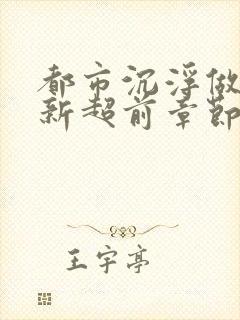 都市沉浮做
新超前章节
王宇亭